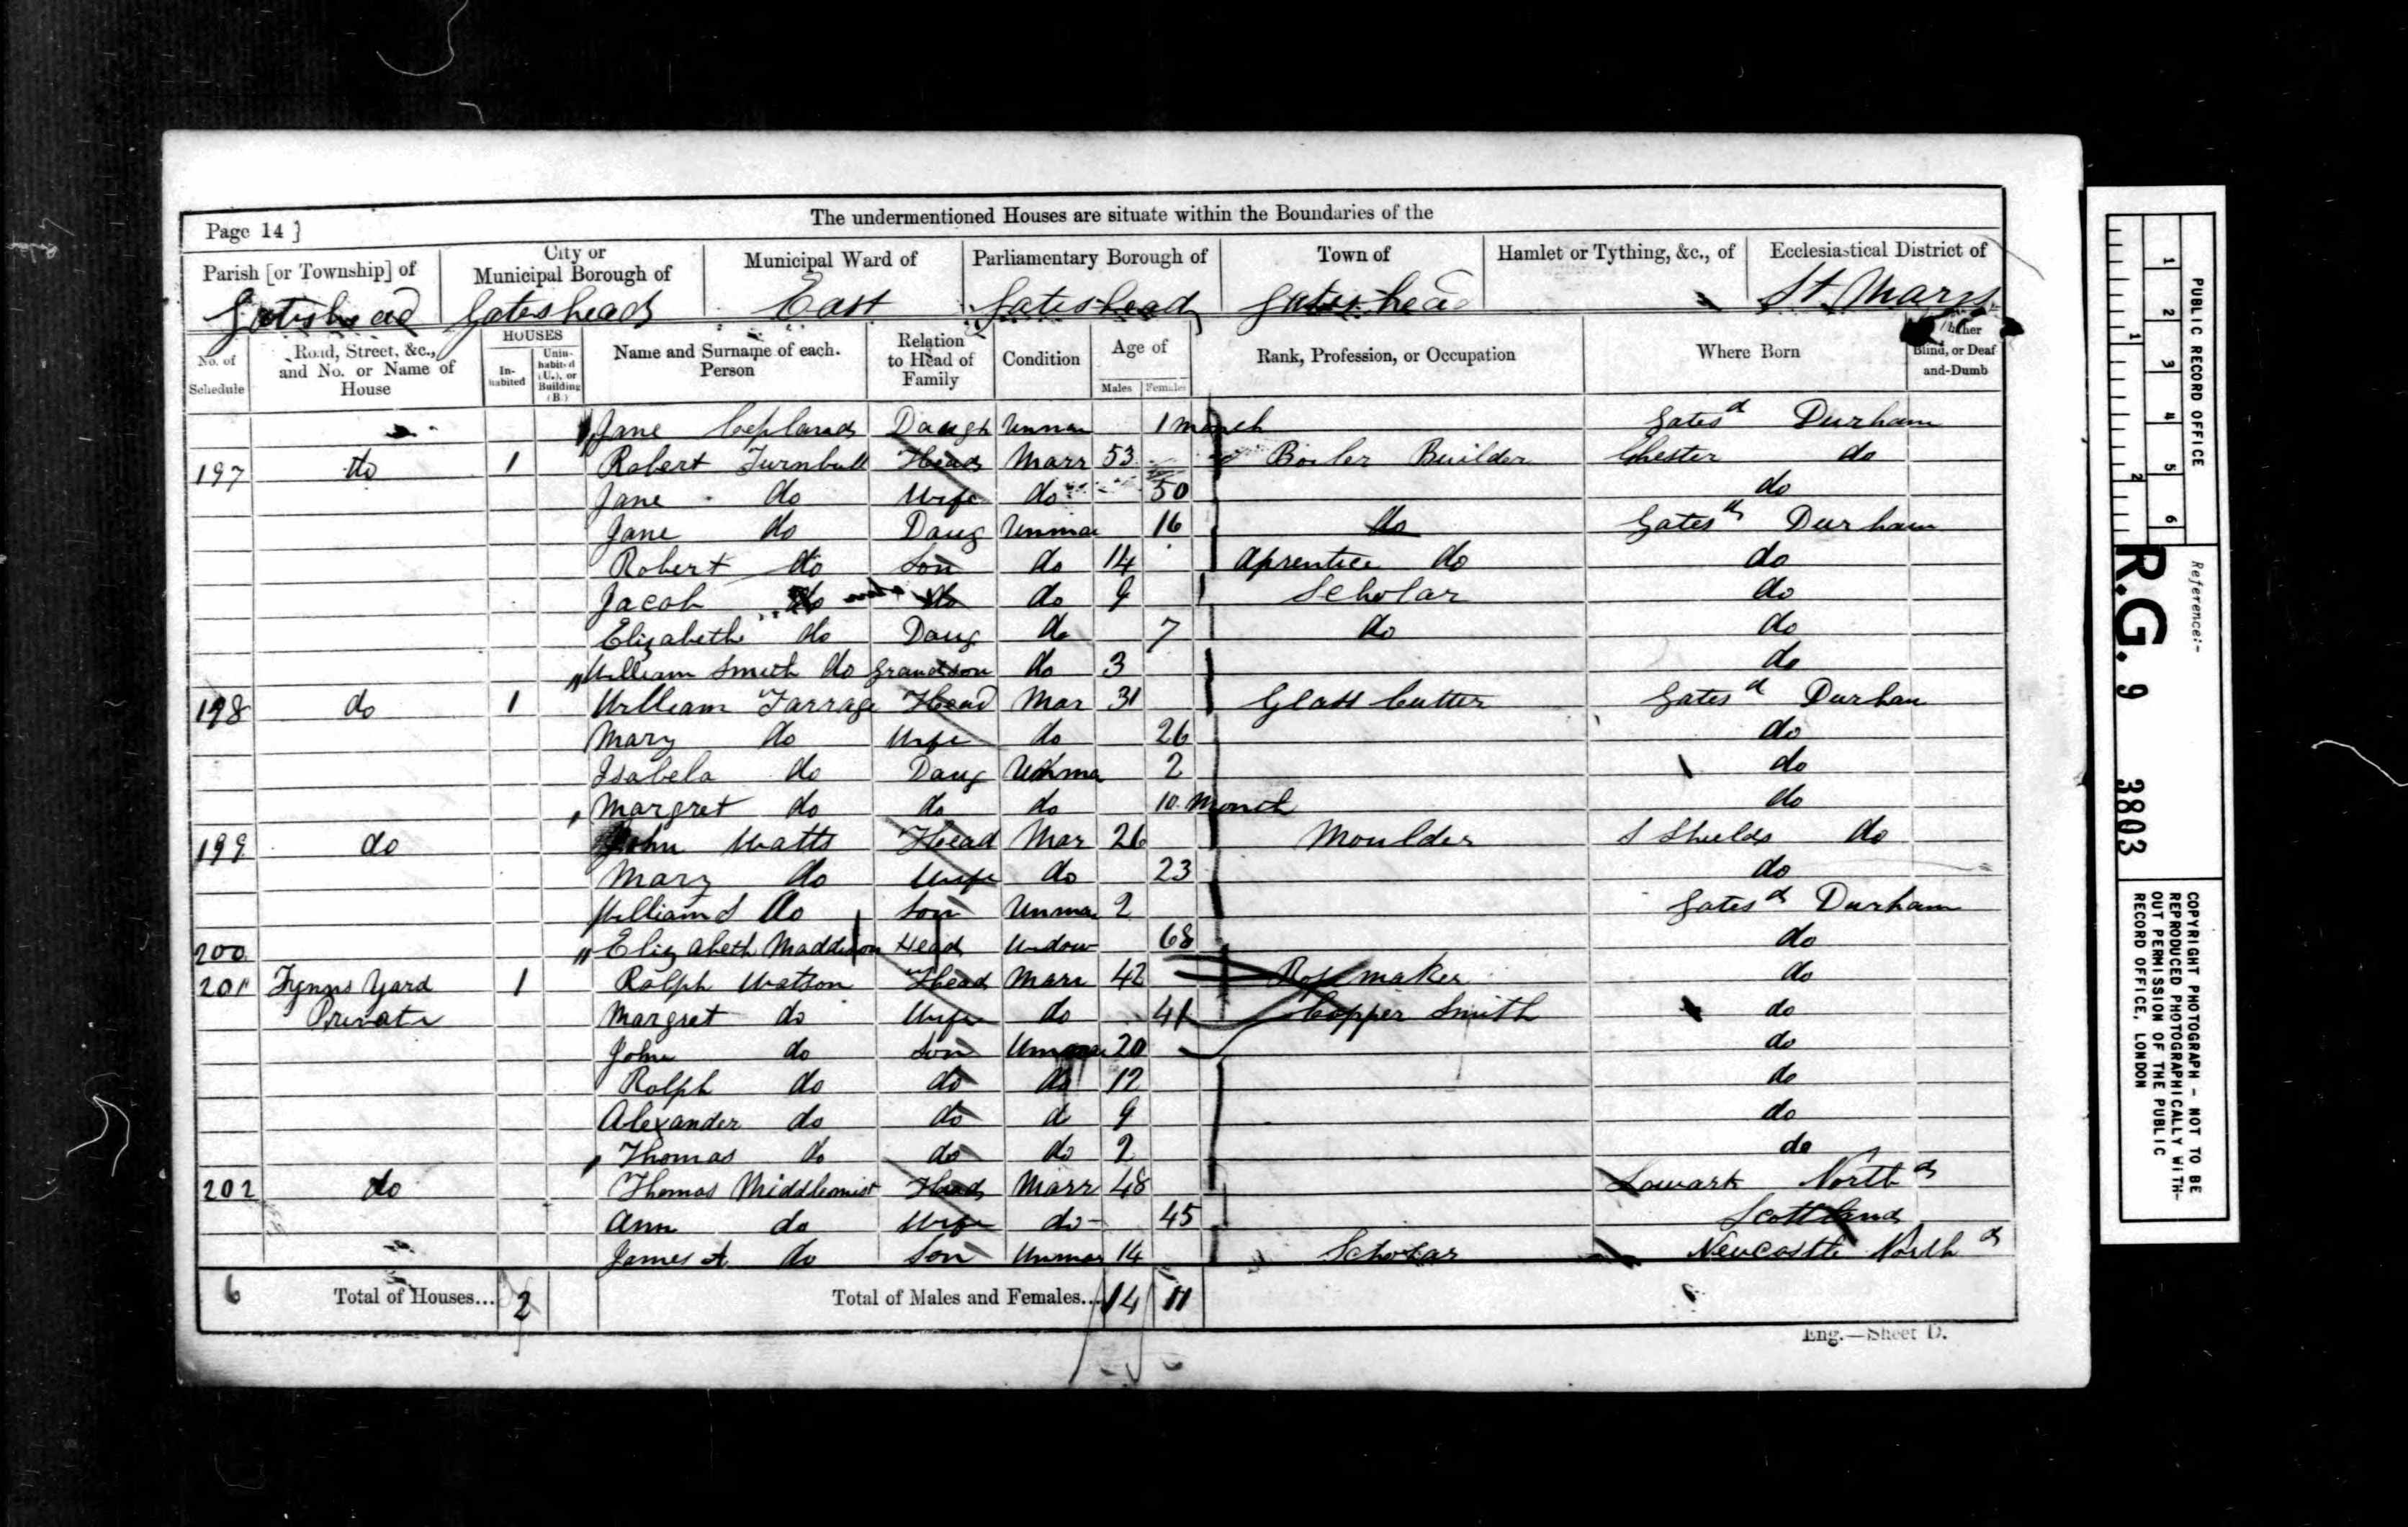 The undermentioned Houses are situate within the Boundaries of the
Page 14 ]
Parish [or Township] of | City or Municipal Borough of | Municipal Ward of | Parliamentary Borough of | Town of | Hamlet or Tything, &c., of | Ecclesiastical District of
Gateshead | Gateshead | East | Gateshead | Gateshead | | St. Marys
No. of Schedule | Road, Street, &c., and No. or Name of House | HOUSES In-habited | Unin-habited (U.), or Building (B.) | Name and Surname of each Person | Relation to Head of Family | Condition | Age of Males | Females | Rank, Profession, or Occupation | Where Born | Blind, or Deaf-and-Dumb
Jane Copland Daugh Unma 1 month Gates'd Durham
197 do 1 Robert Turnbull Head Marr 53 Boiler Builder Chester do
Jane do Wife do 50 do
Jane do Daug Unma 16 do Gates'd Durham
Robert do Son do 14 Aprentice do do
Jacob do do do 9 Scholar do
Elizabeth do Daug do 7 do do
William Smith do Grandson do 3 do
198 do 1 William Farrage Head Mar 31 Glass Cutter Gates'd Durham
Mary do Wife do 26 do
Isabela do Daug Unma 2 do
Margret do do do 10 Month do
199 do John Watts Head Mar 26 Moulder S Shields do
Mary do Wife do 23 do
William S do Son Unma 2 Gates'd Durham
200 Elizabeth Maddison Head Widow 68 do
201 Fynns Yard 1 Ralph Watson Head Marr 42 Ropemaker do
Private Margret do Wife do 41 Copper Smith do
John do Son Unma 20 do
Rolph do do do 12 do
Alexander do do d 9 do
Thomas do do do 2 do
202 do Thomas Middlemist Head Marr 48 Lowark North'd
Ann do Wife do 45 Scotland
James A do Son Unmar 14 Scholar Newcastle North'd
6 Total of Houses... 2 Total of Males and Females... 14 11
Eng.—Sheet D.
PUBLIC RECORD OFFICE
1 2 3 4 5 6
1 2
Reference:-
R.G. 9 3803
COPYRIGHT PHOTOGRAPH - NOT TO BE
REPRODUCED PHOTOGRAPHICALLY WITH-
OUT PERMISSION OF THE PUBLIC
RECORD OFFICE, LONDON